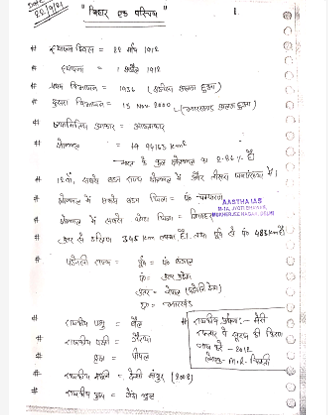 Date
22/9/21
"बिहार एक परिचय" 1
# स्थापना दिवस = 22 मार्च 1912
# स्थापना = 1 अप्रैल 1912
# प्रथम विभाजन = 1936 (उड़ीसा अलग हुआ)
# दूसरा विभाजन = 15 Nov. 2000 (झारखण्ड अलग हुआ)
# आकार = आयताकार
# क्षेत्रफल = 94163 km²
भारत के कुल क्षेत्रफल का 2.86% है
# सबसे बड़ा राज्य क्षेत्रफल में और तीसरा जनसंख्या में।
# क्षेत्रफल में सबसे बड़ा जिला = प० चम्पारण
AASTHA IAS
# क्षेत्रफल में सबसे छोटा जिला =
MUKHERJEE NAGAR, DELHI
# उत्तर से दक्षिण 345 km लम्बा है। पूर्व से प० 483 km है
# पड़ोसी राज्य = पू० = प० बंगाल
प० = उत्तर प्रदेश
उत्तर = नेपाल
द० = झारखण्ड
# राजकीय पशु = बैल
# राजकीय पक्षी = गौरैया
# वृक्ष = पीपल
# राजकीय मछली = देशी मांगुर (2008)
# राजकीय पुष्प = गेंदा फूल
# राजकीय प्रार्थना :- मेरी
रफ्तार पे सूरज की किरण
नाज करे - 2012
लेखक - M.R. चिश्ती